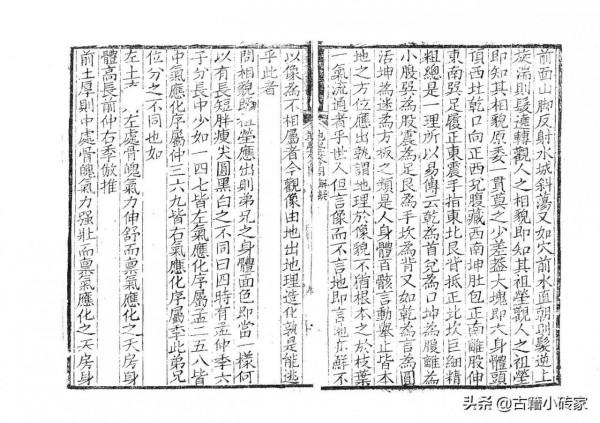 前面山脚反射水城斜蕩又如穴前水直朝則髮逆上
旋湍則髮連轉觀人之相貌即知其祖塋觀人之祖塋
即知其相貌原委一貫莫之少差盖大塊即大身體頭
頂西北乾口向正西兌腹藏西南坤肚包正南離股伸
東南巽足履正東震手指東北艮背抵正北坎巨細精
粗總是一理所以易傳云乾為首兌為口坤為腹離為
小股巽為股震為足艮為手坎為背又如乾為言為圓
活坤為迷為方板之類是人身體百骸言動舉止皆本
地之方位應出孰謂地理於像貌不猶根本之於枝葉
一氣流通者乎世人但言像而不言地即言地亦鮮不
以像為不相屬者今觀像由地出地理造化孰是能逃
乎此者
問相貌既祖塋應出則弟兄之身體面色即當一樣何
以有長短胖瘦尖圓黑白之不同曰四時有孟仲季六
子分長中少如一四七皆左氣應化序屬孟二五八皆
中氣應化序屬仲三六九皆右氣應化序屬季此弟兄
位分之不同也如
左土左處骨魄氣力伸舒而禀氣應化之天房身
體高長前仲右季倣推
前土厚則中處骨魄氣力强壯而禀氣應化之天房身
头条 @古籍小砖家